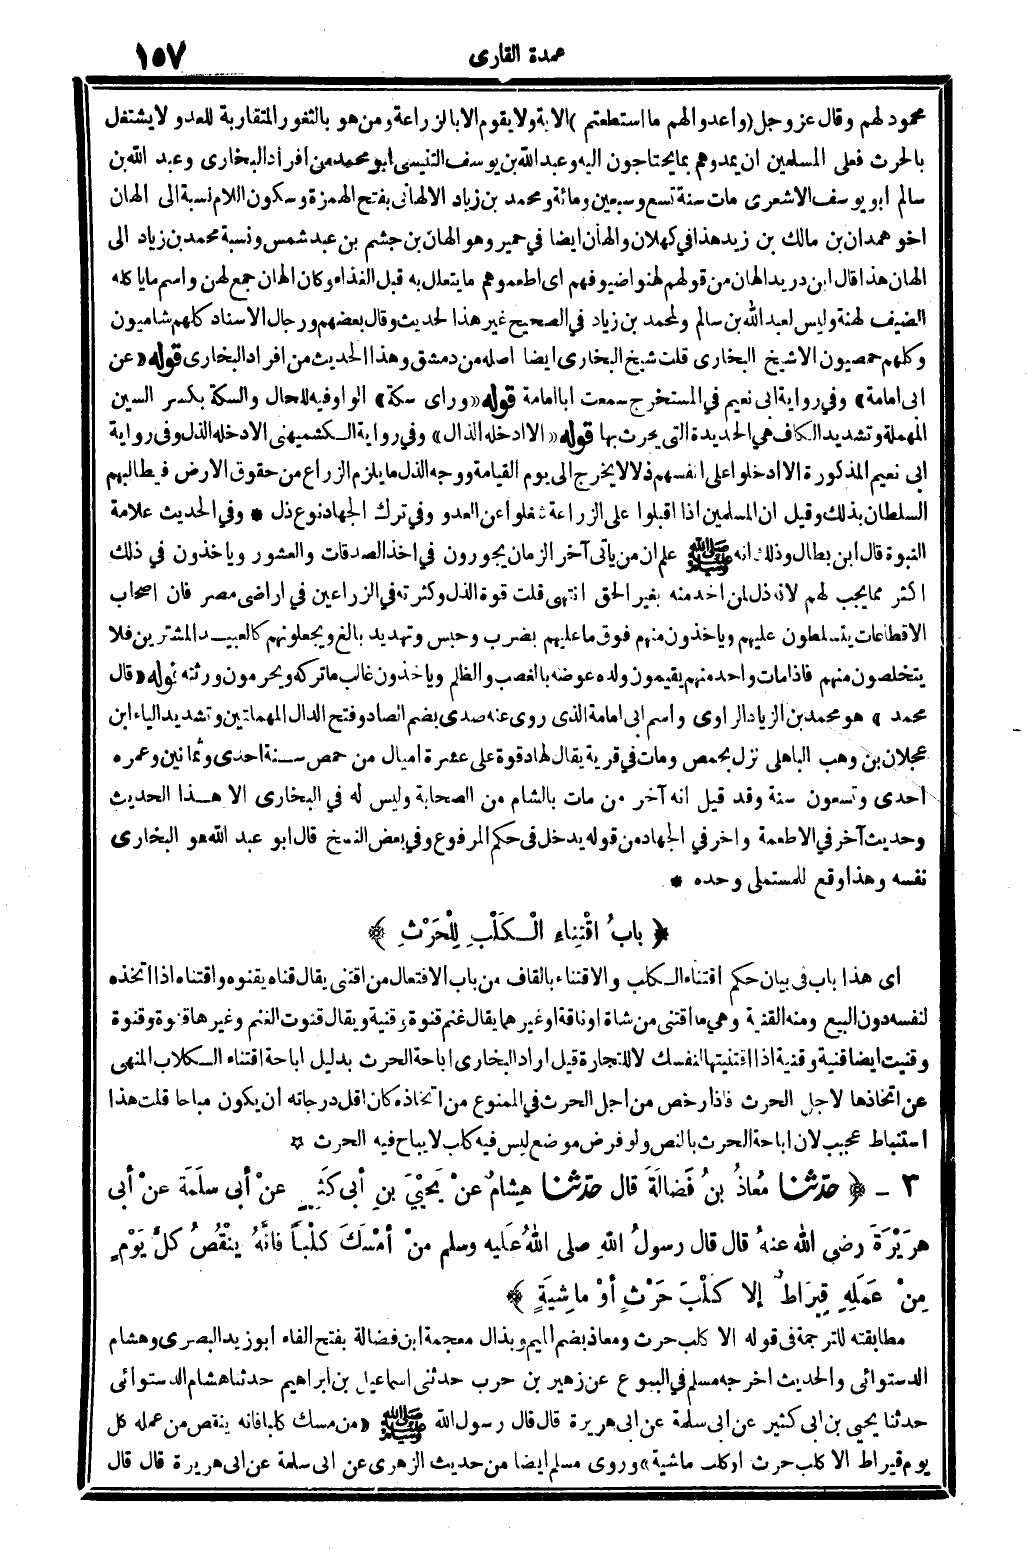 عمدة القارى ١٥٧
محمود لهم وقال عز وجل (وأعدوا لهم ما استطعتم) الآية ولا يقوم الا بالزراعة ومن هو بالثغور المتقاربة للعدو لا يشتغل
بالحرث فعلى المسلمين ان يمدوهم بما يحتاجون اليه وعبد الله بن يوسف التنيسى ابو محمد من افراد البخارى وعبد الله بن
سالم ابو يوسف الاشعرى مات سنة تسع وسبعين ومائة ومحمد بن زياد الالهانى بفتح الهمزة وسكون اللام نسبة الى الهان
اخو همدان بن مالك بن زيد هذا فى كهلان والهان ايضا فى حمير وهو الهان بن جشم بن عبد شمس ونسبة محمد بن زياد الى
الهان هذا قال ابن دريد الهان من قولهم لهنوا ضيوفهم اى اطعموهم ما يتعلل به قبل الغذاء وكان الهان جمع لهن واسم ما ياكله
الضيف لهنة وليس لعبد الله بن سالم ولمحمد بن زياد فى الصحيح غير هذا الحديث وقال بعضهم ورجال الاسناد كلهم شاميون
وكلهم حمصيون الا شيخ البخارى قلت شيخ البخارى ايضا اصله من دمشق وهذا الحديث من افراد البخارى قوله «عن
ابى امامة» وفى رواية ابى نعيم فى المستخرج سمعت ابا امامة قوله «وراى سكة» الواو فيه للحال والسكة بكسر السين
المهملة وتشديد الكاف هى الحديدة التى يحرث بها قوله «الا ادخله الذال» وفى رواية الكشميهنى الا دخله الذل وفى رواية
ابى نعيم المذكورة الا ادخلوا على انفسهم ذلا لا يخرج الى يوم القيامة ووجه الذل ما يلزم الزراع من حقوق الارض فيطالبهم
السلطان بذلك وقيل ان المسلمين اذا اقبلوا على الزراعة شغلوا عن العدو وفى ترك الجهاد نوع ذل * وفى الحديث علامة
النبوة قال ابن بطال وذلك انه ﷺ علم ان من يأتى آخر الزمان يجورون فى اخذ الصدقات والعشور وياخذون فى ذلك
اكثر مما يجب لهم لانه ذل لمن اخذ منه بغير الحق انتهى قلت قوة الذل وكثرته فى الزراعين فى اراضى مصر فان اصحاب
الاقطاعات يتسلطون عليهم وياخذون منهم فوق ما عليهم بضرب وحبس وتهديد بالغ ويجعلونهم كالعبيد المشترين فلا
يتخلصون منهم فاذا مات واحد منهم يقيمون ولده عوضه بالغصب والظلم وياخذون غالب ما تركه ويحرمون ورثته قوله «قال
محمد» هو محمد بن الزياد الراوى واسم ابى امامة الذى روى عنه صدى بضم الصاد وفتح الدال المهملتين وتشديد الياء ابن
عجلان بن وهب الباهلى نزل بحمص ومات فى قرية يقال لها دقوة على عشرة اميال من حمص سنة احدى وثمانين وعمره
احدى وتسعون سنة وقد قيل انه آخر من مات بالشام من الصحابة وليس له فى البخارى الا هذا الحديث
وحديث آخر فى الاطعمة وآخر فى الجهاد من قوله يدخل فى حكم المرفوع وفى بعض النسخ قال ابو عبد الله هو البخارى
نفسه وهذا وقع للمستملى وحده *
﴿ بابُ اقْتِناءِ الْكَلْبِ لِلْحَرْثِ ﴾
اى هذا باب فى بيان حكم اقتناء الكلب والاقتناء بالقاف من باب الافتعال من اقتنى يقال قناه يقنوه واقتناه اذا اتخذه
لنفسه دون البيع ومنه القنية وهى ما اقتنى من شاة او ناقة او غيرهما يقال غنم قنوة وقنية ويقال قنوت الغنم وغيرها قنوة وقنوة
وقنيت ايضا قنية وقنية اذا اقتنيتها لنفسك لا للتجارة قيل اراد البخارى اباحة الحرث بدليل اباحة اقتناء الكلاب المنهى
عن اتخاذها لاجل الحرث فاذا رخص من اجل الحرث فى الممنوع من اتخاذه كان اقل درجاته أن يكون مباحا قلت هذا
استنباط عجيب لان اباحة الحرث بالنص ولو فرض موضع ليس فيه كلب لا يباح فيه الحرث ☆
٣ - ﴿ حدّثنا مُعاذُ بنُ فَضالَةَ قال حدّثنا هِشامٌ عنْ يَحْيَى بنِ أبى كَثِيرٍ عنْ أبى سلَمَةَ عنْ أبى
هرَيْرَةَ رضى الله عنهُ قال قال رسولُ اللهِ صلى اللهُ عَليه وسلم منْ أمْسَكَ كَلْباً فانَّهُ ينْقُصُ كلَّ يَوْمٍ
مِنْ عَمَلِهِ قِيرَاطٌ إلا كلْبَ حَرْثٍ أوْ ماشِيَةٍ ﴾
مطابقته للترجمة فى قوله الا كلب حرث ومعاذ بضم الميم وبذال معجمة ابن فضالة بفتح الفاء ابو زيد البصرى وهشام
الدستوائى والحديث اخرجه مسلم فى البيوع عن زهير بن حرب حدثنى اسماعيل بن ابراهيم حدثنا هشام الدستوائى
حدثنا يحيى بن ابى كثير عن ابى سلمة عن ابى هريرة قال قال رسول الله ﷺ «من مسك كلبا فانه ينقص من عمله كل
يوم قيراط الا كلب حرث او كلب ماشية» وروى مسلم ايضا من حديث الزهرى عن ابى سلمة عن ابى هريرة قال قال